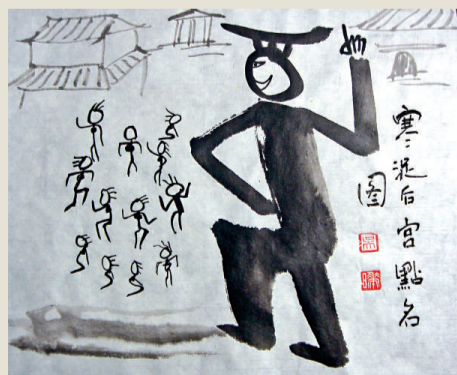 寒浞后宫點名
图